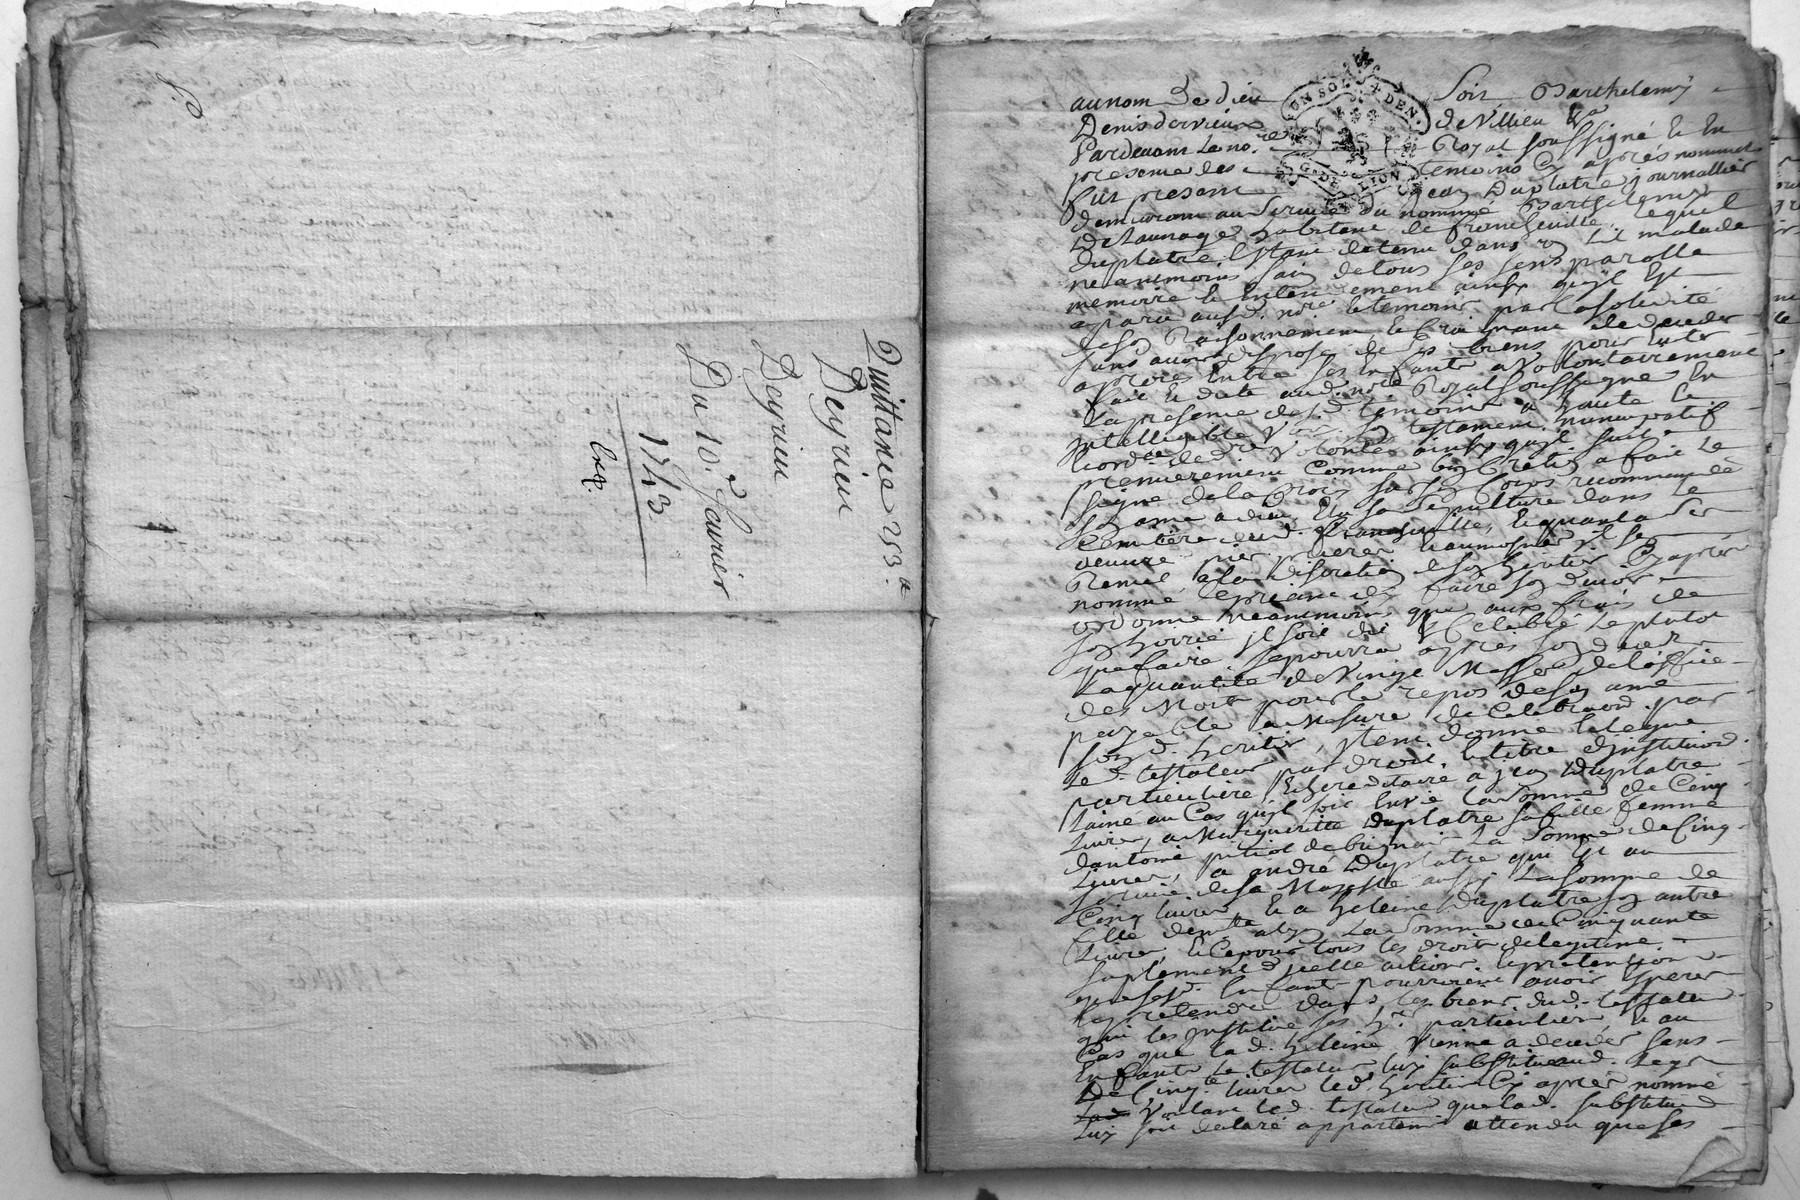 Quittance 253#
Deyrieu
Deyrieu
Du 10e. Janvier
1743.
au nom de dieu Soit Barthelemy
Denis dervieux de Villieu
Pardevant le no.re Royal soussigné Et En
presence des temoins Cy aprés nommés
fut present Jean Duplatre journallier
demeurant au service du nommé Barthelemy
Delaunage habitant de francheville lequel
duplatre Estant detenu dans un lit malade
neantmoins sain de tous ses sens parolle
memoire et Entendement ainsy qu'jl Est
aparu aud. no.re et temoins par la solidité
de son Raisonnement et Craignant de deceder
sans avoir disposé de ses biens pour Eviter
a procés Entre ses Enfants a volontairement
fait Et dicté aud. no.re Royal soussigné En
la presence desd. temoins a haute Et
jntelligible Voix son testament nuncupatif
et ord.ce de d.re volonté ainsy qu'jl suit
premierement Comme bon Cretien a fait le
signe de la Croix sur son Corps recommandé
son ame a dieu, Elu sa sepulture dans le
Cemitiere dud. francheville, Et quant a ses
prieres Et aumosnes jl se
Remet a la discretion de son heritier Cy aprés
nommé le priant d'en faire son devoir
ordonne neantmoins que aux frais de
son hoirie jl soit dit Et Celebré le plutot
que faire se pourra aprés son deces
la quantité de Vingt Messes de l'office
des Morts pour le repos de son ame
payable a Mesure de Celebraon. par
sond. heritier, jtem donne Et legue
le d. testateur par droit Et titre d'jnstitution
particuliere Et hereditaire a jean Duplatre
l'ainé au Cas qu'jl soit En vie la somme de Cinq
livres, a Marguerite Duplatre sa fille femme
d'antoine de brignais la somme de Cinq
livres, a andré Duplatre qui Est au
service de sa Majesté aussy la somme de
Cinq livres Et a heleine Duplatre son autre
fille la somme de Cinquante
livres, Et Ce pour tous les droits de legitime
suplement d'jcelle actions Et pretentions
que sesd. Enfants pourroient avoir Esperer
Et pretendre dans les biens dud. testateur
qui les jnstitue ses h.rs particuliers Et au
Cas que lad. heleine vienne a deceder sans
Enfants le testateur luy substitue aud. legs
de Cinq.te livres led. heritier Cy aprés nommé
voulant led. testateur que lad. substitution
luy soit declaré appartenir attendu que ses